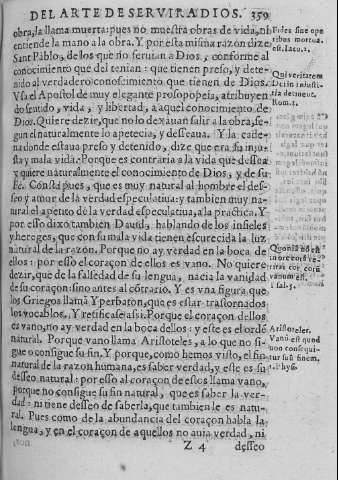 DEL ARTE DE SERVIR A DIOS. 359
obra, la llama muerta: pues no muestra obras de vida, ni
entiende la mano a la obra. Y por esta misma razon dize
Sant Pablo, de los que no seruian a Dios, conforme al
conocimiento que del tenian: que tienen preso, y dete-
nido al verdadero conoscimiento que tienen de Dios.
Vsa el Apostol de muy elegante prosopopeia, atribuyen
do sentido, vida, y libertad, a aquel conocimiento de
Dios. Quiere dezir, que no lo dexauan salir a la obra, se-
gun el naturalmente lo apetecia, y desseaua. Y la cade-
na donde estaua preso y detenido, dize que era su injus-
ta y mala vida. Porque es contraria a la vida que dessea
y quiere naturalmente el conocimiento de Dios, y de su
fe. Consta pues, que es muy natural al hombre el des-
seo y amor de la verdad especulatiua: y tambien muy na-
tural el apetito de la verdad especulatiua, a la practica. Y
por esso dixo tambien Dauid, hablando de los infieles
y hereges, que con su mala vida tienen escurecida la luz
natural de la razon. Porque no ay verdad en la boca de
ellos: por esso el coraçon de ellos es vano. No quiere
dezir, que de la falsedad de su lengua, nacia la vanidad
de su coraçon: sino antes al cõtrario. Y es vna figura que
los Griegos llamã Yperbaton, que es estar trastornados
los vocablos. Y retificase assi. Porque el coraçon dellos
es vano, no ay verdad en la boca dellos: y este es el ordẽ
natural. Porque vano llama Aristoteles, a lo que no si-
gue o consigue su fin. Y porque, como hemos visto, el fin
natural de la razon humana, es saber verdad, y este es su
desseo natural: por esso al coraçon de estos llama vano,
porque no consigue su fin natural, que es saber la ver-
dad: ni tiene desseo de saberla, que tambien le es natu-
ral. Pues como de la abundancia del coraçon habla la
lengua, y en el coraçon de aquellos no auia verdad, ni
Z 4 desseo
Fides sine ope
ribus mortua
est. Iaco. 2.
Qui veritatem
Dei in iniusti-
tia detinent.
Rom. 1.
Quoniã nõ est
in ore eorũ ve-
ritas cor eorũ
vanum est.
Psal. 5.
Aristoteles.
Vanũ est quod
non consequi-
tur suũ finem.
2. Phys.